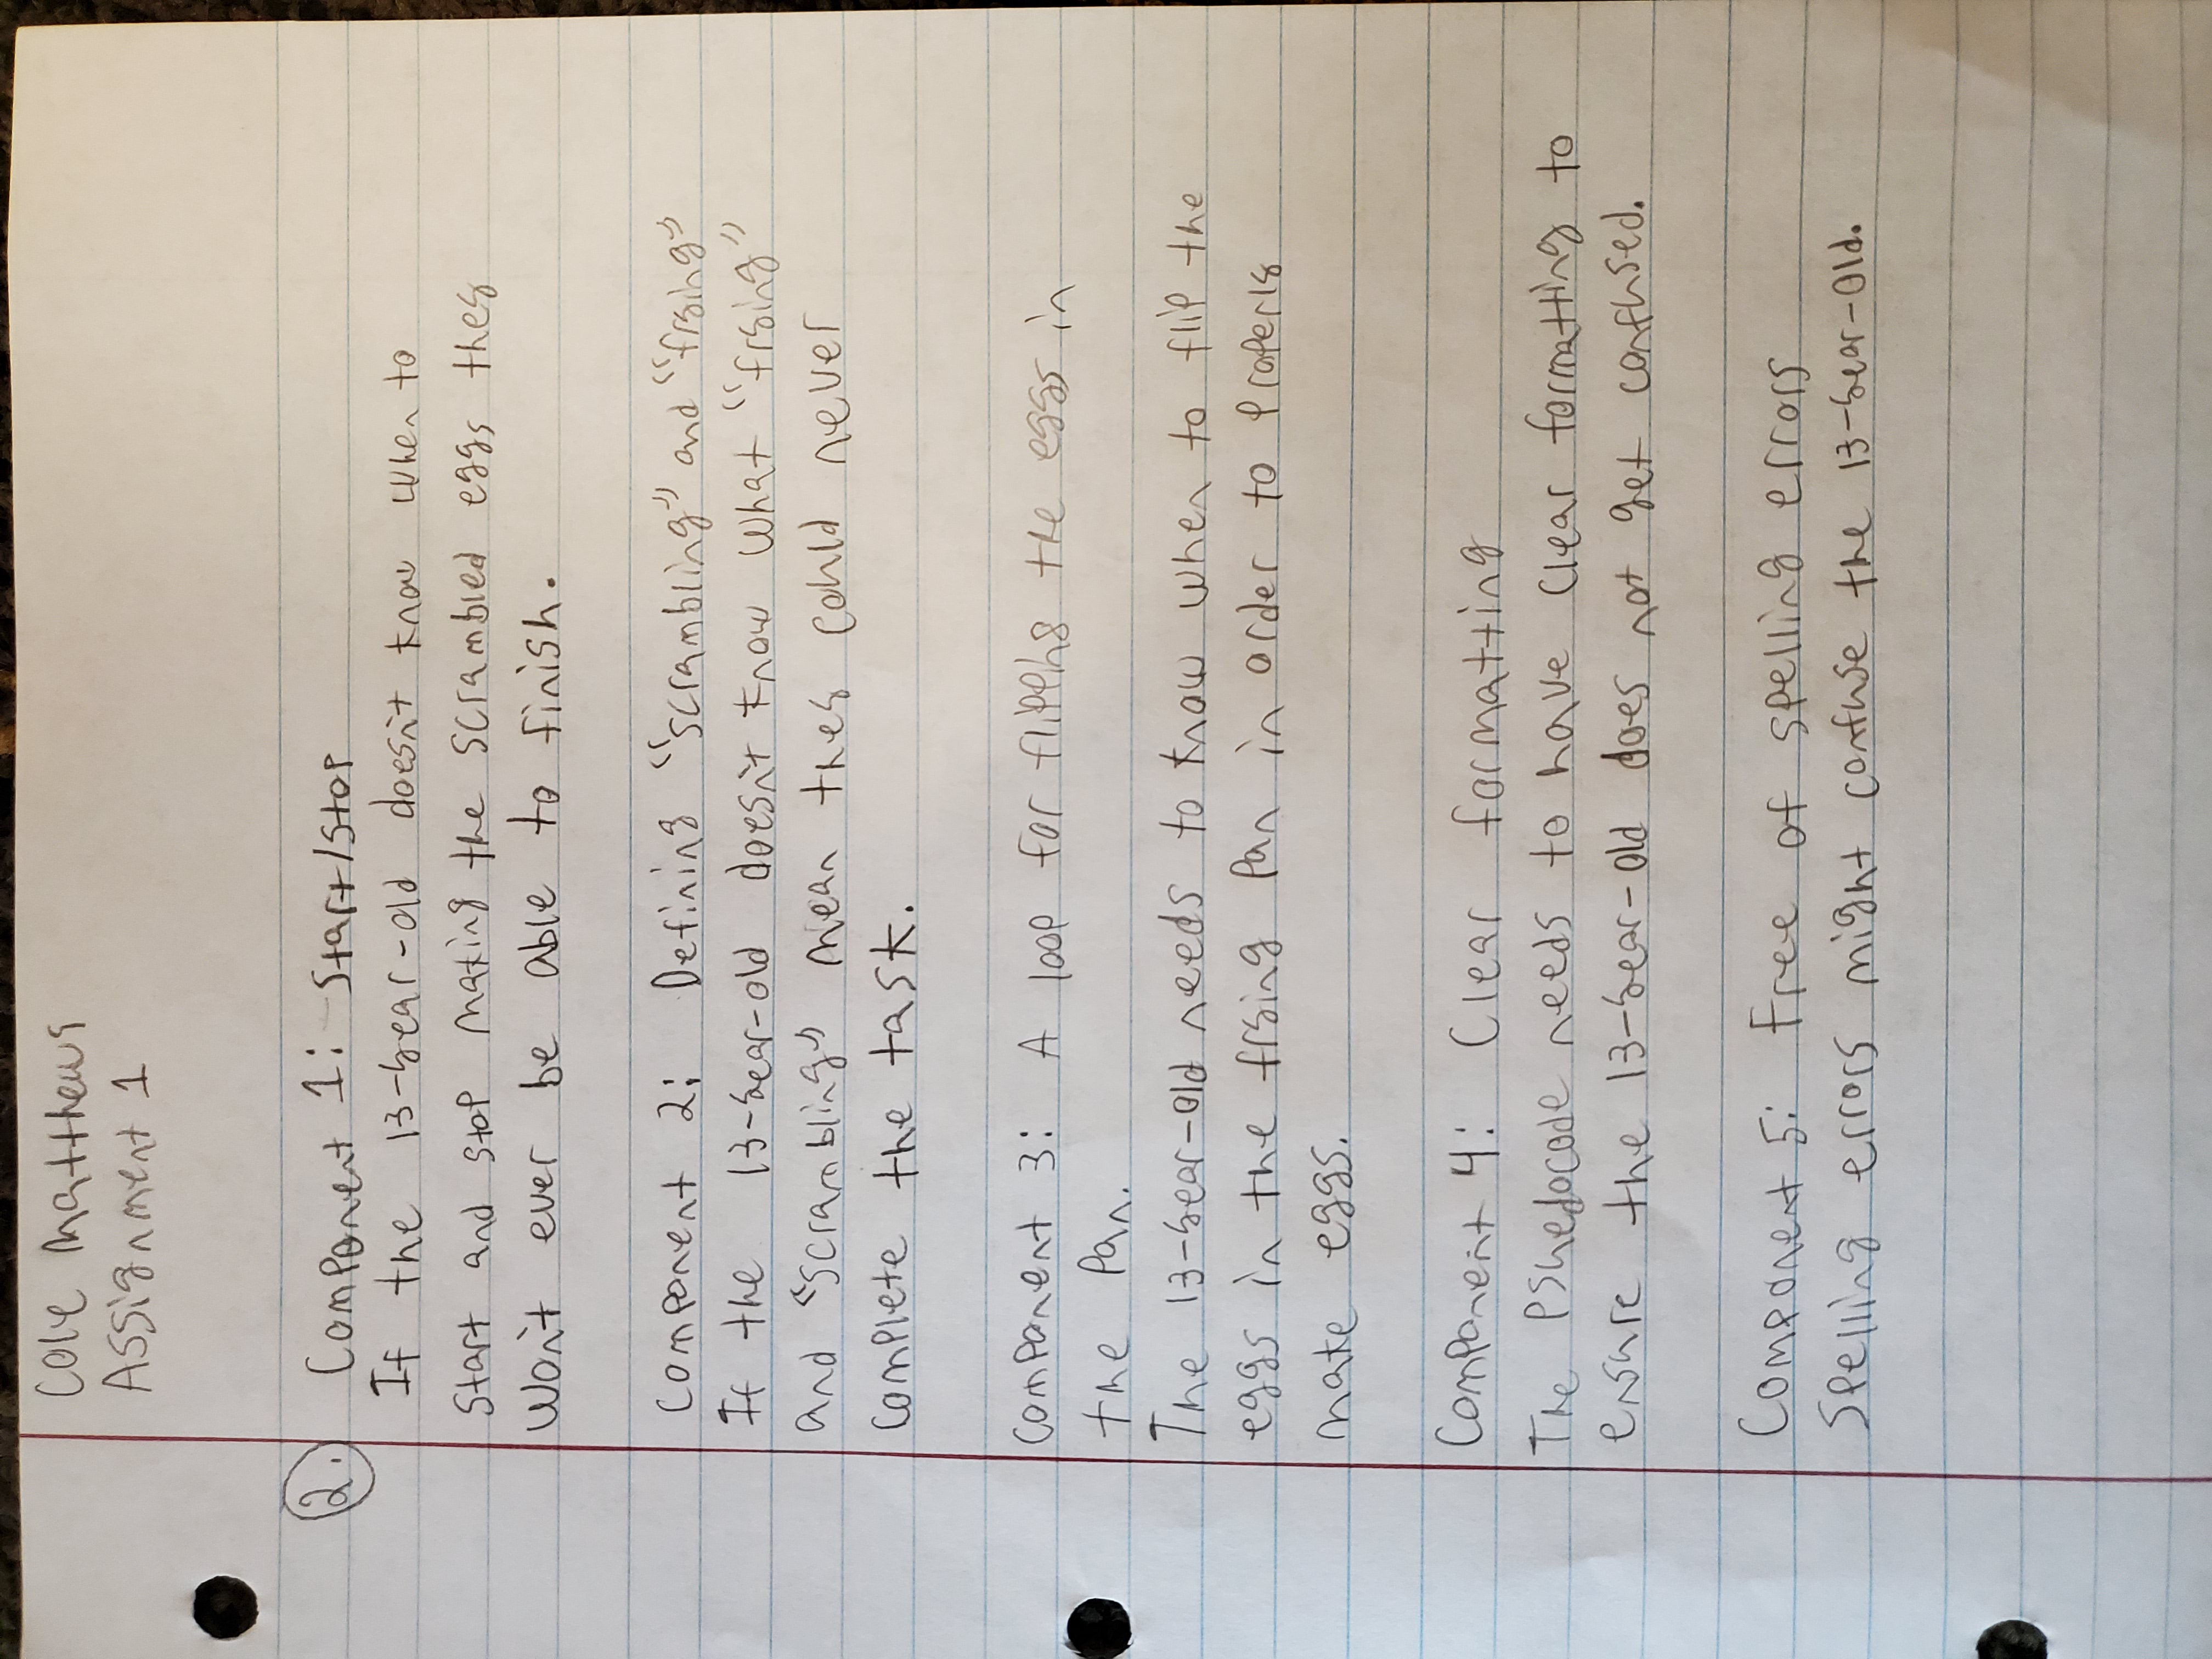 Cole Matthews
Assignment 1
2. Component 1: Start/Stop
If the 13-year-old doesn't know when to
start and stop making the scrambled eggs they
won't ever be able to finish.
Component 2: Defining "scrambling" and "frying"
If the 13-year-old doesn't know what "frying"
and "scrambling" mean they could never
complete the task.
Component 3: A loop for flipping the eggs in
the Pan.
The 13-year-old needs to know when to flip the
eggs in the frying Pan in order to Properly
make eggs.
Component 4: Clear formatting
The Psuedocode needs to have clear formatting to
ensure the 13-year-old does not get confused.
Component 5: Free of spelling errors
Spelling errors might confuse the 13-year-old.